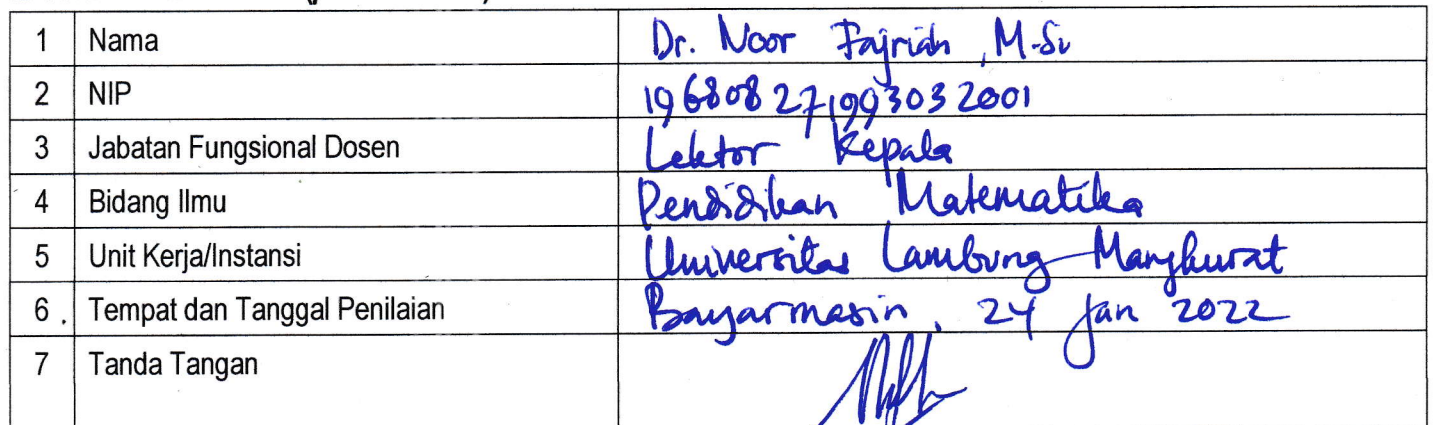 1 Nama Dr. Noor Fajriah, M.Si
2 NIP 196808271993032001
3 Jabatan Fungsional Dosen Lektor Kepala
4 Bidang Ilmu Pendidikan Matematika
5 Unit Kerja/Instansi Universitas Lambung Mangkurat
6. Tempat dan Tanggal Penilaian Banjarmasin, 24 Jan 2022
7 Tanda Tangan